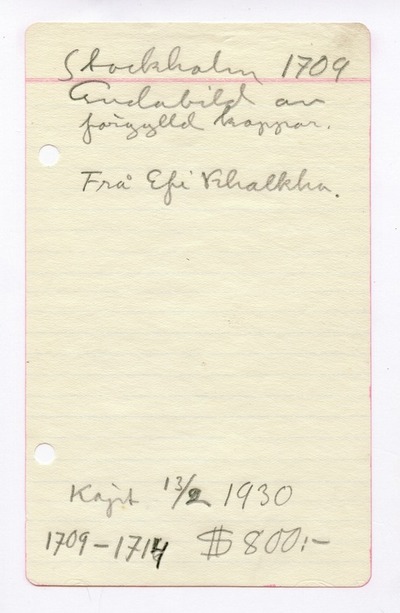 Stockholm 1709
Gudabild av
förgylld koppar.
Frå Efi Khalkha.
Köpt 13/2 1930
1709-1714 $ 800:-